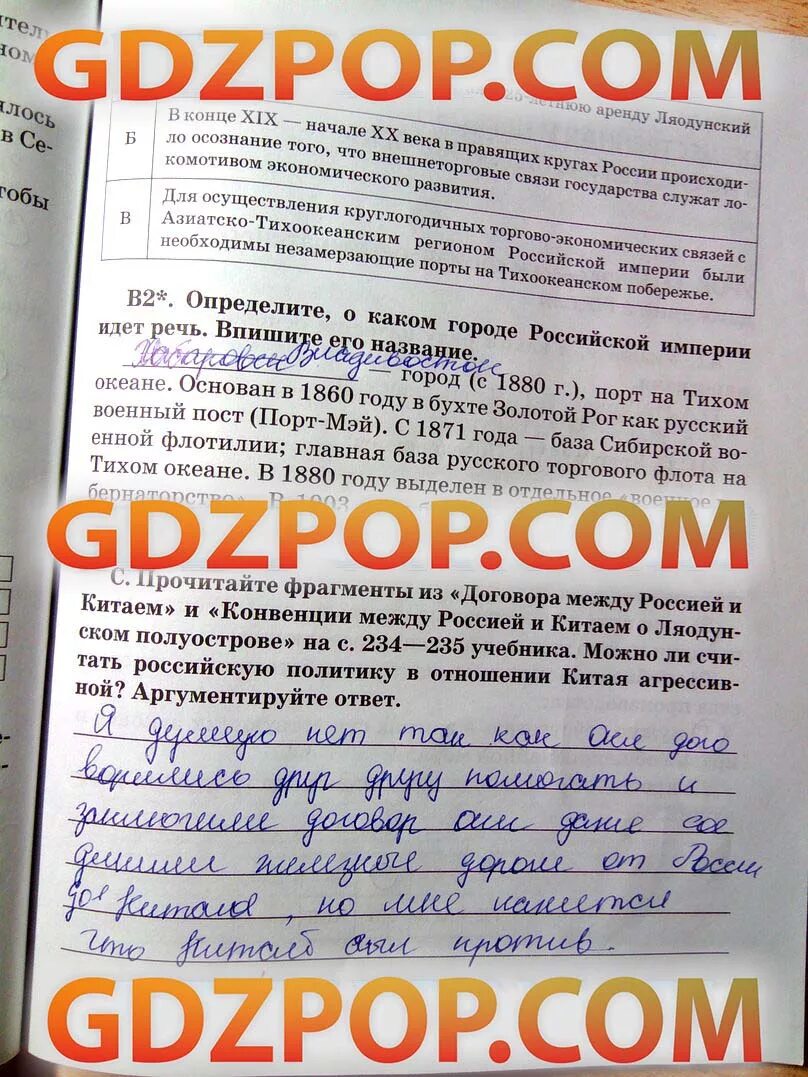 тел
GDZPOP.COM
ном
25-летнюю аренду Ляодунский
лось
в Се-
тобы
Б
В конце XIX — начале XX века в правящих кругах России происходи-
ло осознание того, что внешнеторговые связи государства служат ло-
комотивом экономического развития.
В
Для осуществления круглогодичных торгово-экономических связей с
Азиатско-Тихоокеанским регионом Российской империи были
необходимы незамерзающие порты на Тихоокеанском побережье.
В2*. Определите, о каком городе Российской империи
идет речь. Впишите его название.
Хабаровск Владивосток город (с 1880 г.), порт на Тихом
океане. Основан в 1860 году в бухте Золотой Рог как русский
военный пост (Порт-Мэй). С 1871 года — база Сибирской во-
енной флотилии; главная база русского торгового флота на
Тихом океане. В 1880 году выделен в отдельное «военное
бернаторство». В 1903
GDZPOP.COM
С. Прочитайте фрагменты из «Договора между Россией и
Китаем» и «Конвенции между Россией и Китаем о Ляодун-
ском полуострове» на с. 234—235 учебника. Можно ли счи-
тать российскую политику в отношении Китая агрессив-
ной? Аргументируйте ответ.
Я думаю нет так как они дого
ворились друг другу помогать и
заключили договор они даже сое
динили железные дороги от России
до Китая, но мне кажется
что Китай был против.
GDZPOP.COM